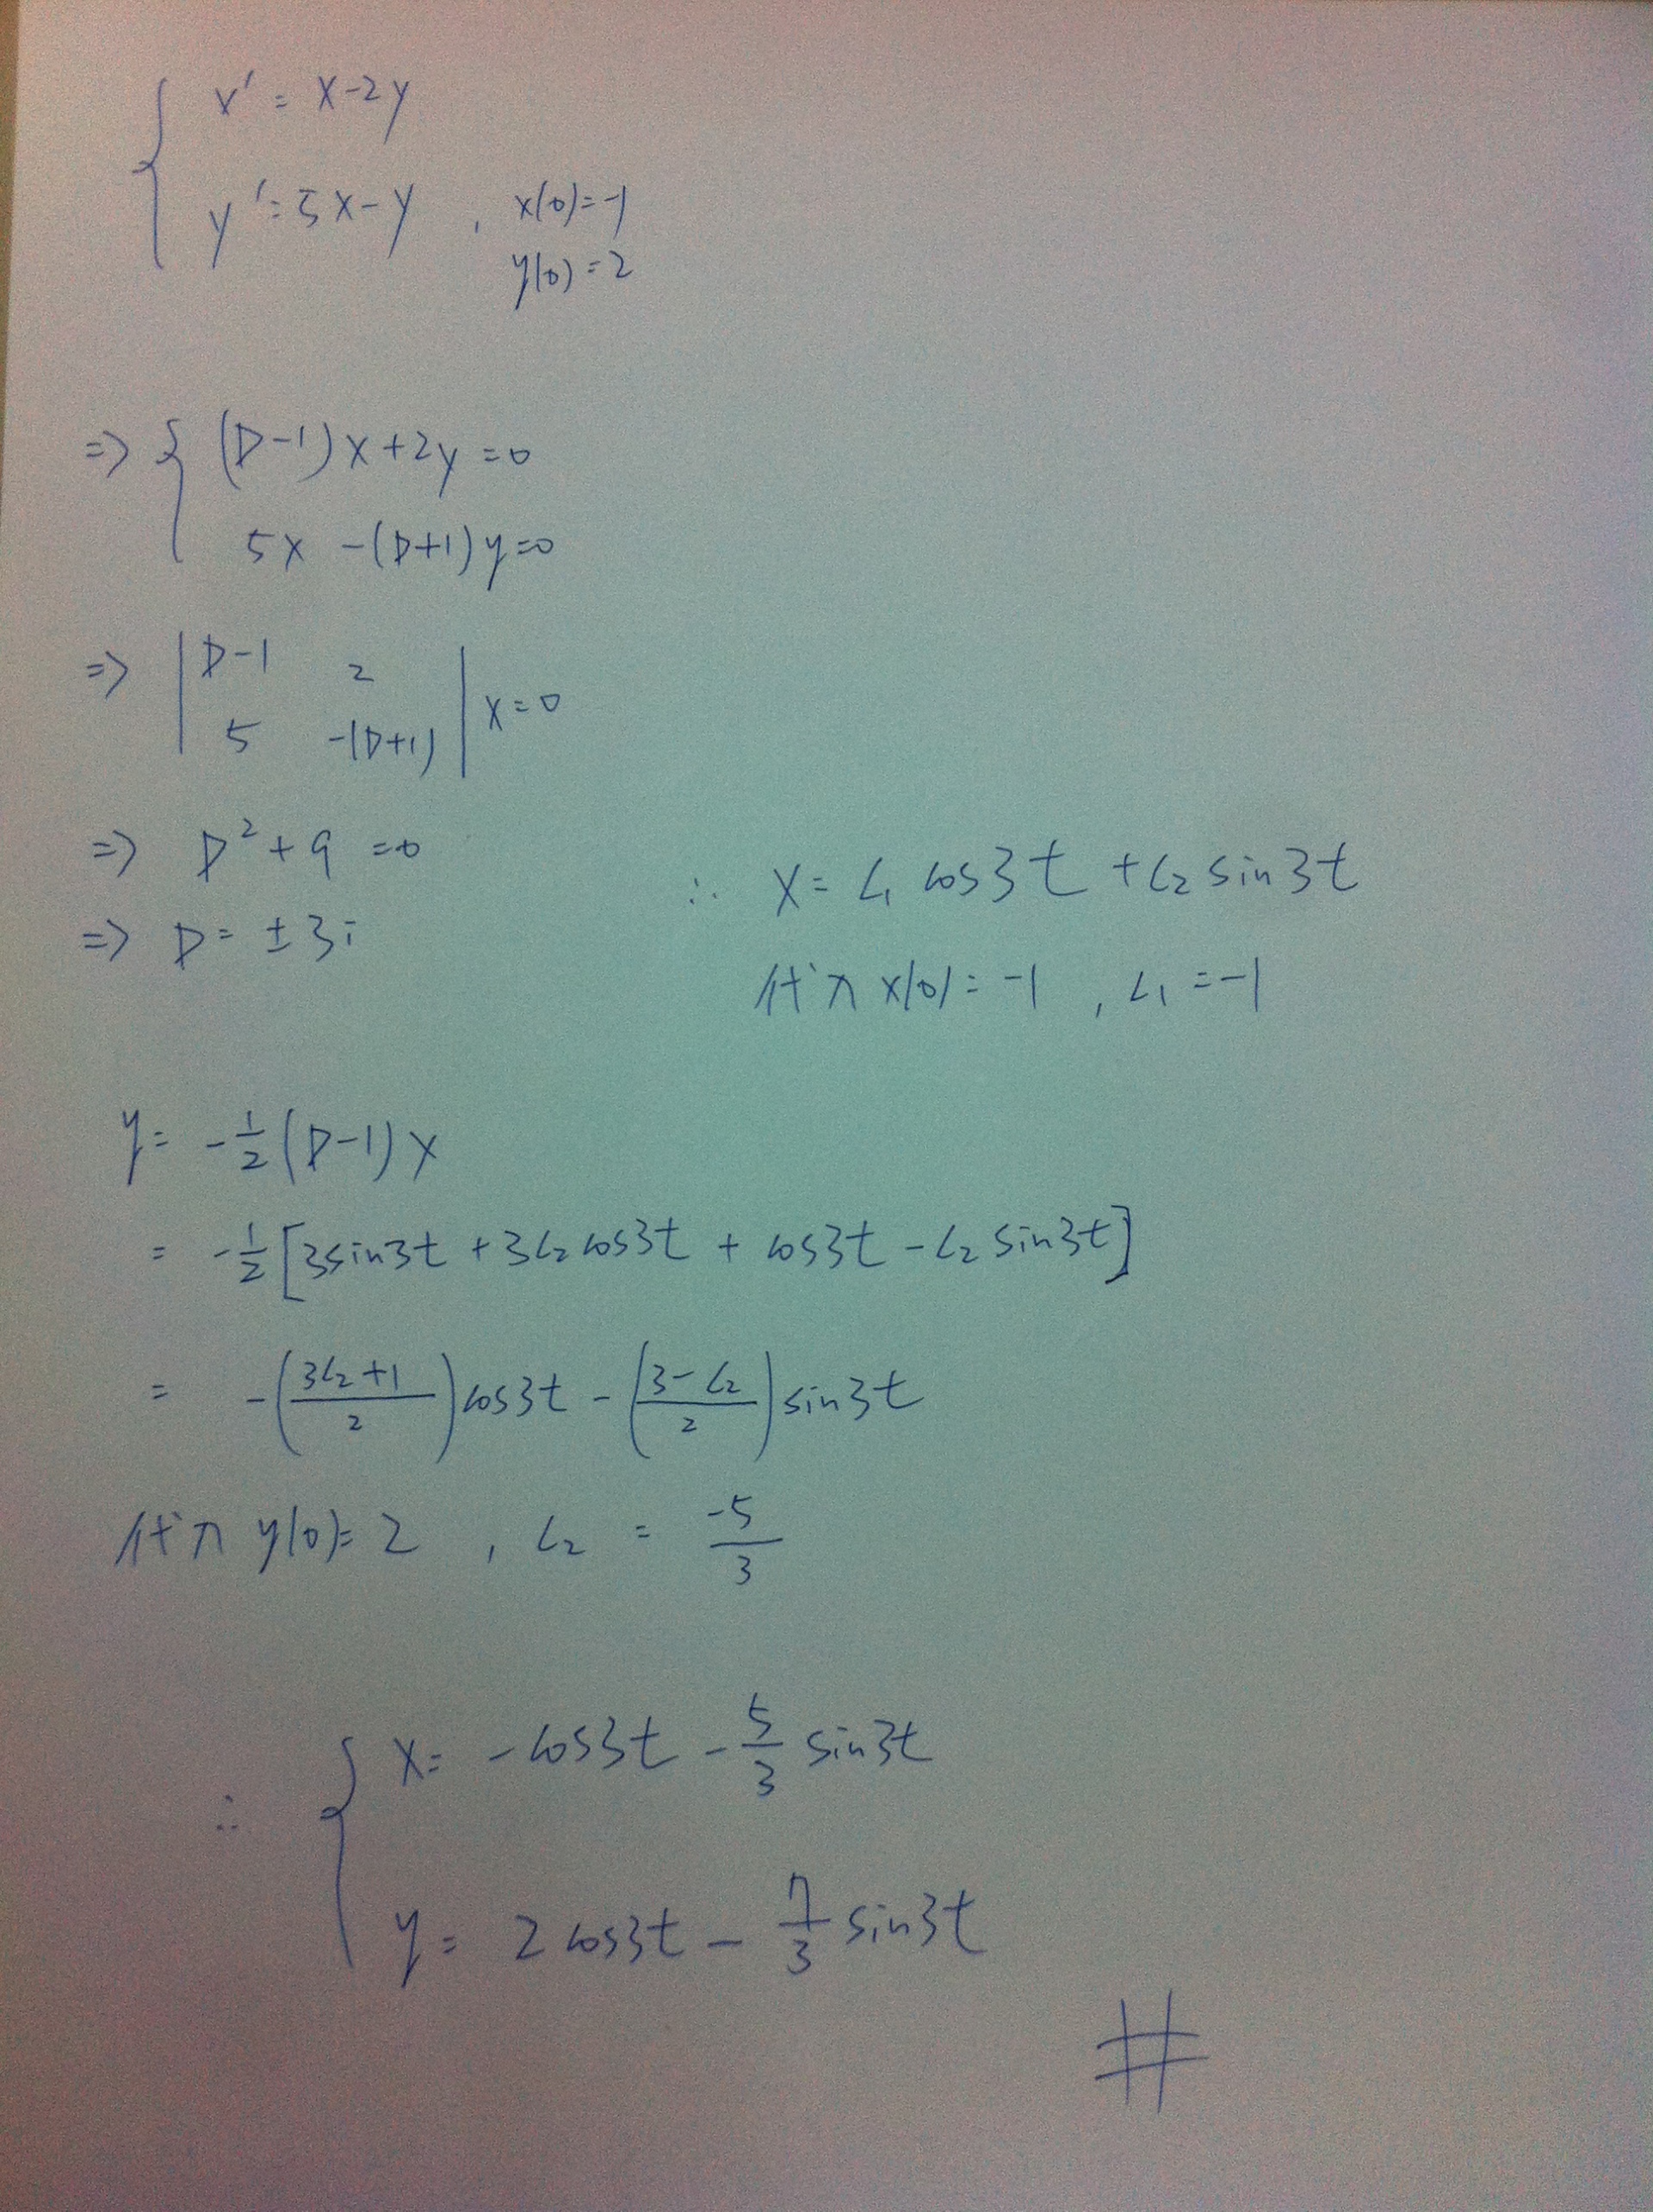 { x' = x-2y
y' = 5x-y , x(0)=-1
y(0)=2
=> { (D-1)x+2y=0
5x -(D+1)y=0
=> | D-1 2
5 -(D+1) | x=0
=> D²+9=0
=> D=±3i
∴ x= c₁cos3t+c₂sin3t
代入x(0)=-1 , c₁=-1
y= -1/2(D-1)x
= -1/2[3sin3t+3c₂cos3t+cos3t-c₂sin3t]
= -((3c₂+1)/2)cos3t-((3-c₂)/2)sin3t
代入y(0)=2 , c₂ = -5/3
∴ { x= -cos3t-5/3 sin3t
y= 2cos3t-7/3 sin3t
#